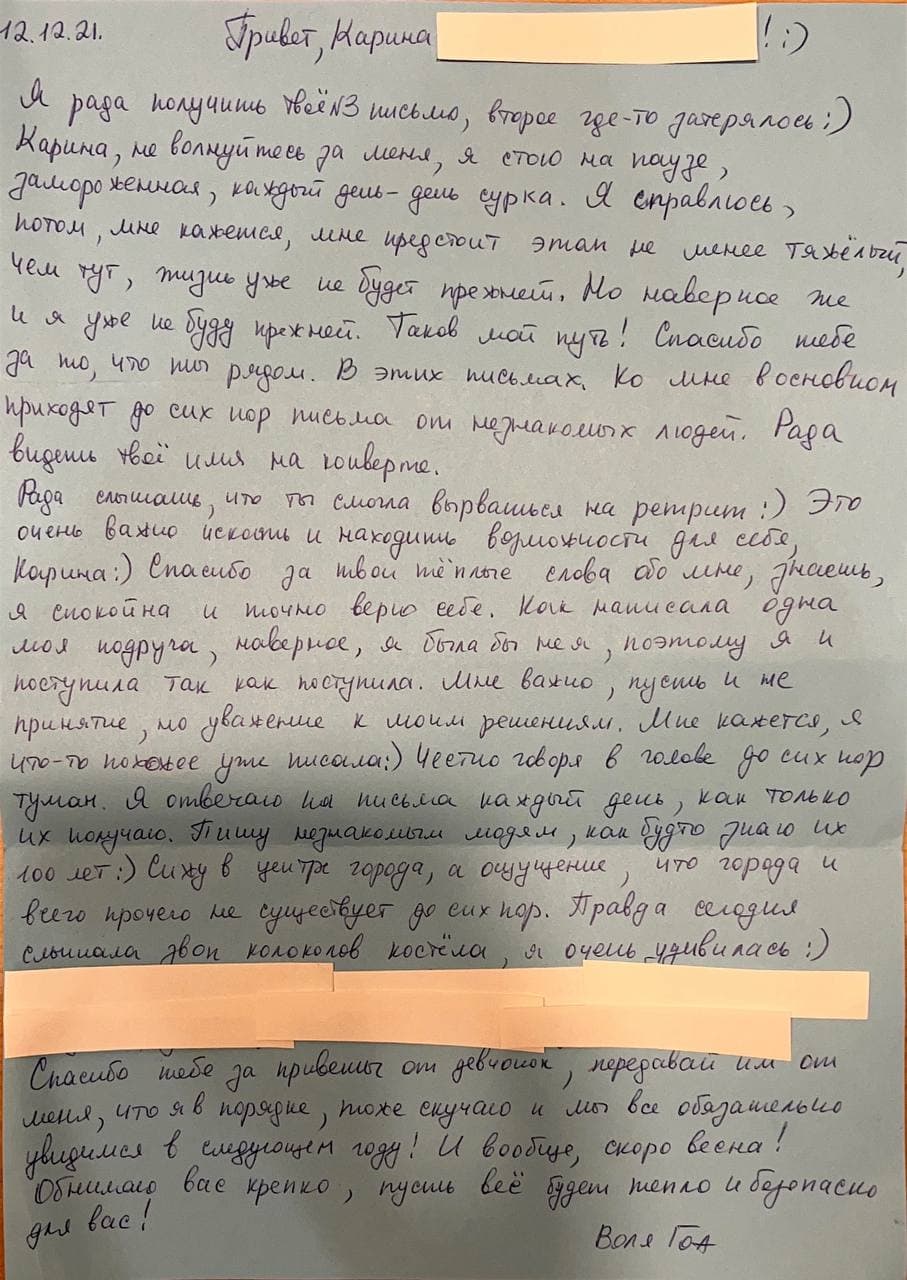 12.12.21. Привет, Карина ! :)
Я рада получить твоё №3 письмо, второе где-то затерялось :)
Карина, не волнуйтесь за меня, я стою на паузе,
замороженная, каждый день - день сурка. Я справлюсь,
потом, мне кажется, мне предстоит этап не менее тяжёлый,
чем тут, жизнь уже не будет прежней. Но наверное же
и я уже не буду прежней. Таков мой путь! Спасибо тебе
за то, что ты рядом. В этих письмах. Ко мне в основном
приходят до сих пор письма от незнакомых людей. Рада
видеть твоё имя на конверте.
Рада слышать, что ты смогла вырваться на ретрит :) Это
очень важно искать и находить возможности для себя,
Карина :) Спасибо за твои тёплые слова обо мне, знаешь,
я спокойна и точно верю себе. Как написала одна
моя подруга, наверное, я была бы не я, поэтому я и
поступила так как поступила. Мне важно, пусть и не
принятие, но уважение к моим решениям. Мне кажется, я
что-то похожее уже писала :) Честно говоря в голове до сих пор
туман. Я отвечаю на письма каждый день, как только
их получаю. Пишу незнакомым людям, как будто знаю их
100 лет :) Сижу в центре города, а ощущение, что города и
всего прочего не существует до сих пор. Правда сегодня
слышала звон колоколов костёла, я очень удивилась :)
Спасибо тебе за приветы от девчонок, передавай им от
меня, что я в порядке, тоже скучаю и мы все обязательно
увидимся в следующем году! И вообще, скоро весна!
Обнимаю вас крепко, пусть всё будет тепло и безопасно
для вас!
Воля Год